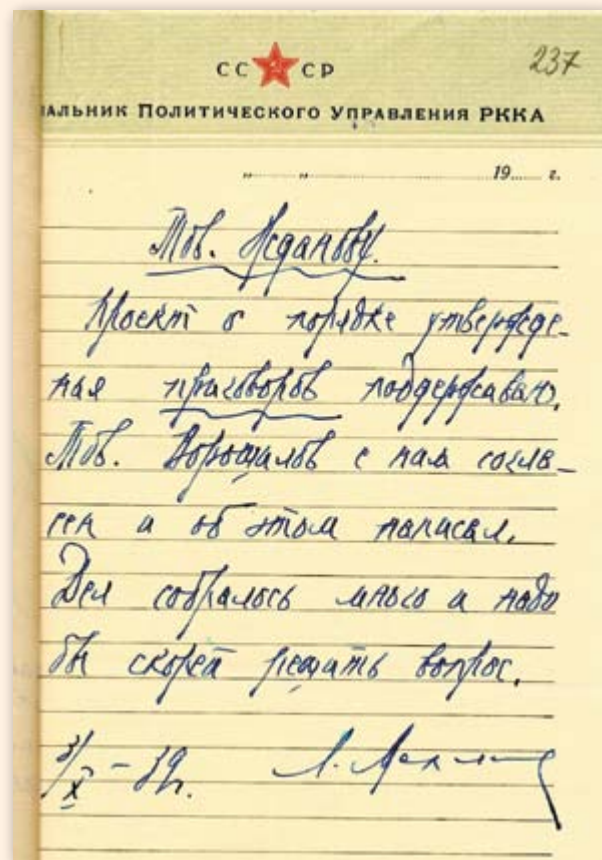 СС СР
237
АЛЬНИК ПОЛИТИЧЕСКОГО УПРАВЛЕНИЯ РККА
„ “ 19 г.
Тов. Жданову.
Проект о порядке утвержде-
ния приговоров поддерживаю.
Тов. Ворошилов с ним согла-
сен и об этом написал.
Дел собралось много и надо
бы скорей решить вопрос.
3/X – 39г. Л. Мехлис